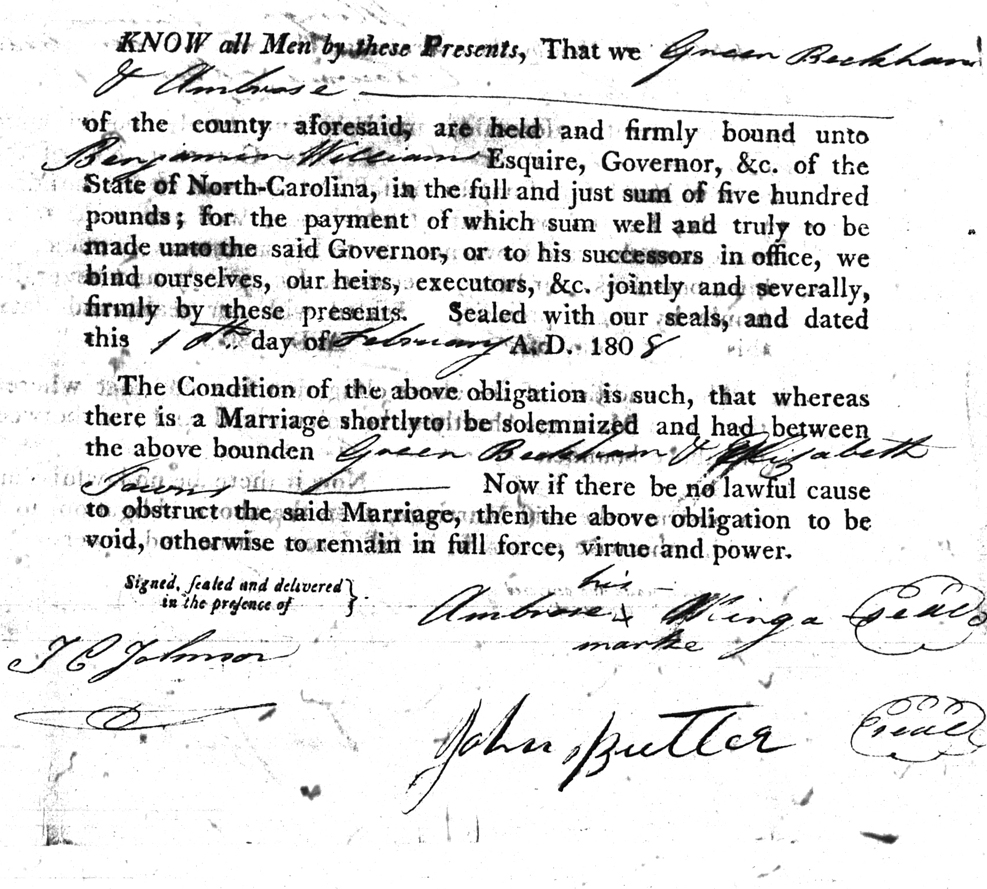 KNOW all Men by these Presents, That we Green Beckham
& Ambrose
of the county aforesaid, are held and firmly bound unto
Benjamin Williams Esquire, Governor, &c. of the
State of North-Carolina, in the full and just sum of five hundred
pounds; for the payment of which sum well and truly to be
made unto the said Governor, or to his successors in office, we
bind ourselves, our heirs, executors, &c. jointly and severally,
firmly by these presents. Sealed with our seals, and dated
this day of February A. D. 1808
The Condition of the above obligation is such, that whereas
there is a Marriage shortly to be solemnized and had between
the above bounden Green Beckham & Elizabeth
Towns Now if there be no lawful cause
to obstruct the said Marriage, then the above obligation to be
void, otherwise to remain in full force, virtue and power.
Signed, ſealed and delivered
in the preſence of
his
Ambrose x (seal)
marke
J C Johnson
John Butler (seal)